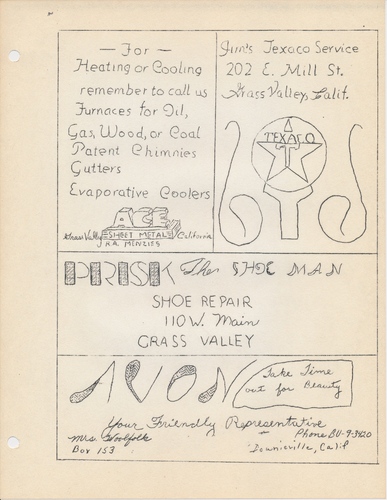 — For —
Heating or Cooling
remember to call us
Furnaces for Oil,
Gas, Wood, or Coal
Patent Chimnies
Gutters
Evaporative Coolers
ACE
Grass Valley SHEET METAL California
H.R. MENZIES
Jim's Texaco Service
202 E. Mill St.
Grass Valley, Calif.
TEXACO
T
PRISK The SHOE MAN
SHOE REPAIR
110 W. Main
GRASS VALLEY
AVON
Take Time
out for Beauty
Your Friendly Representative
Mrs. Woolfolk
Phone BU-9-3420
Box 153
Downieville, Calif